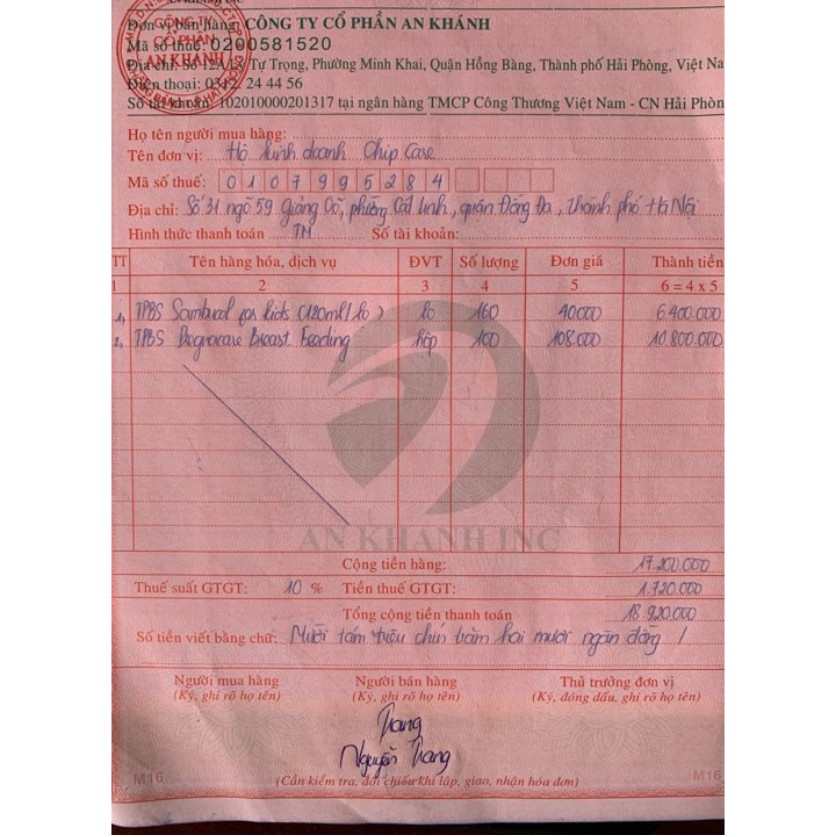 AN KHANH INC
Đơn vị bán hàng: CÔNG TY CỔ PHẦN AN KHÁNH
Mã số thuế: 0200581520
Địa chỉ: Số 12A Lý Tự Trọng, Phường Minh Khai, Quận Hồng Bàng, Thành phố Hải Phòng, Việt Na
Điện thoại: 0312. 24 44 56
Số tài khoản: 102010000201317 tại ngân hàng TMCP Công Thương Việt Nam - CN Hải Phòn
CÔNG TY
CỔ PHẦN
AN KHÁNH
Họ tên người mua hàng:
Tên đơn vị: Hộ kinh doanh Chip Case
Mã số thuế: 0107995284
Địa chỉ: Số 31 ngõ 59 Giảng Võ, phường Cát Linh, quận Đống Đa, thành phố Hà Nội
Hình thức thanh toán TM Số tài khoản:
TT Tên hàng hóa, dịch vụ ĐVT Số lượng Đơn giá Thành tiền
1 2 3 4 5 6 = 4 x 5
1, TPBS Sambucol for kids (120ml/lọ) lọ 160 40.000 6.400.000
2, TPBS Pregnacare Breast Feeding hộp 100 108.000 10.800.000
AN KHANH INC
Cộng tiền hàng: 17.200.000
Thuế suất GTGT: 10 % Tiền thuế GTGT: 1.720.000
Tổng cộng tiền thanh toán 18.920.000
Số tiền viết bằng chữ: Mười tám triệu chín trăm hai mươi ngàn đồng /
Người mua hàng Người bán hàng Thủ trưởng đơn vị
(Ký, ghi rõ họ tên) (Ký, ghi rõ họ tên) (Ký, đóng dấu, ghi rõ họ tên)
Trang
Nguyễn Trang
M16 (Cần kiểm tra, đối chiếu khi lập, giao, nhận hóa đơn) M16